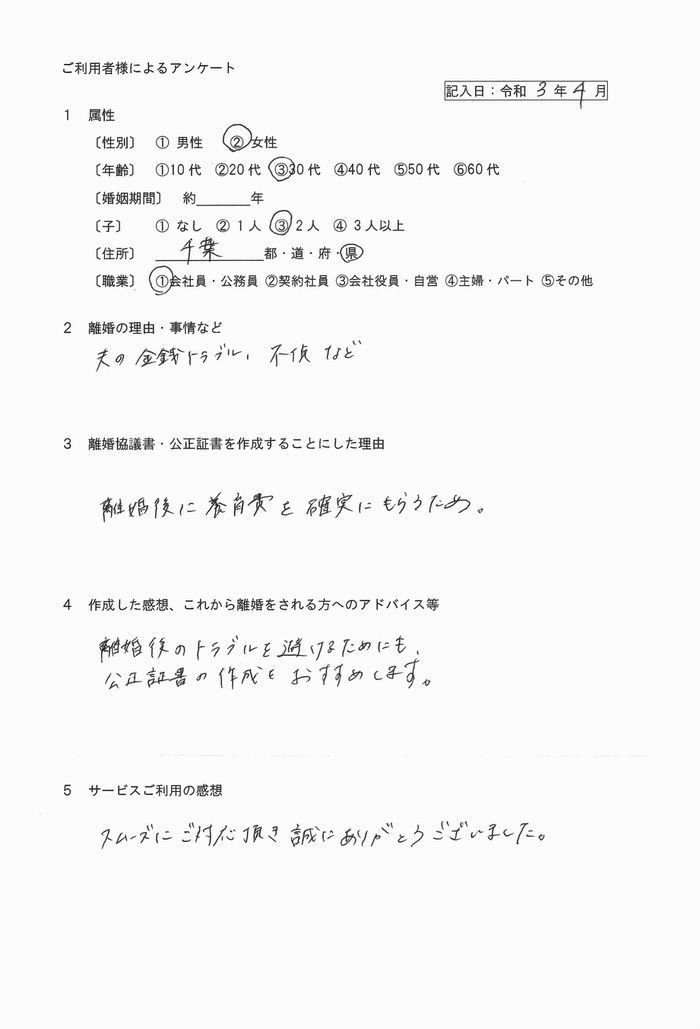 ご利用者様によるアンケート
記入日：令和 3 年 4 月
1 属性
〔性別〕 ① 男性 ② 女性
〔年齢〕 ①10代 ②20代 ③30代 ④40代 ⑤50代 ⑥60代
〔婚姻期間〕 約______年
〔子〕 ① なし ② 1人 ③ 2人 ④ 3人以上
〔住所〕 千葉 都・道・府・県
〔職業〕 ①会社員・公務員 ②契約社員 ③会社役員・自営 ④主婦・パート ⑤その他
2 離婚の理由・事情など
夫の金銭トラブル、不貞など
3 離婚協議書・公正証書を作成することにした理由
離婚後に養育費を確実にもらうため。
4 作成した感想、これから離婚をされる方へのアドバイス等
離婚後のトラブルを避けるためにも、
公正証書の作成をおすすめします。
5 サービスご利用の感想
スムーズにご対応頂き誠にありがとうございました。